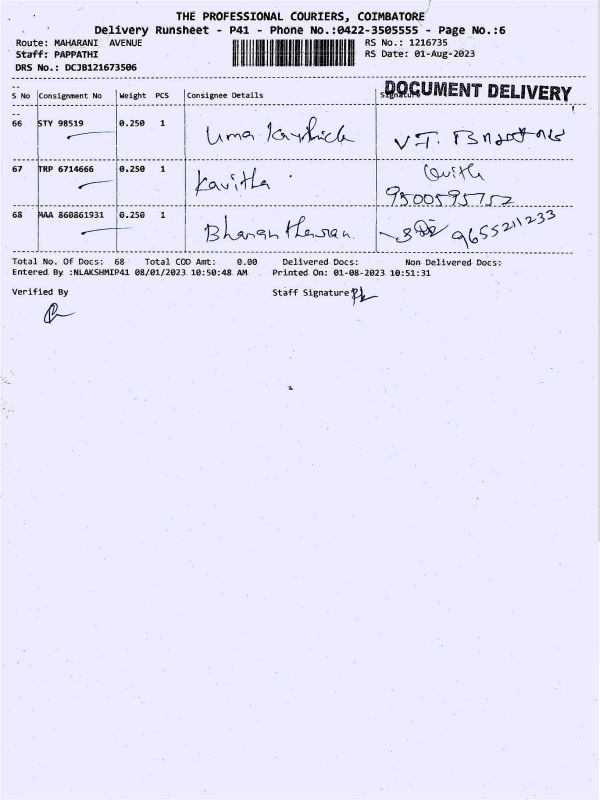 THE PROFESSIONAL COURIERS, COIMBATORE
Delivery Runsheet - P41 - Phone No.:0422-3505555 - Page No.:6
Route: MAHARANI AVENUE RS No.: 1216735
Staff: PAPPATHI RS Date: 01-Aug-2023
DRS No.: DCJB121673506
DOCUMENT DELIVERY
S No Consignment No Weight PCS Consignee Details Signature
66 STY 98519 0.250 1 Uma
67 TRP 6714666 0.250 1 Kavitha
9500595752
68 MAA 860861931 0.250 1 9655211233
Total No. Of Docs: 68 Total COD Amt: 0.00 Delivered Docs: Non Delivered Docs:
Entered By :NLAKSHMIP41 08/01/2023 10:50:48 AM Printed On: 01-08-2023 10:51:31
Verified By Staff Signature